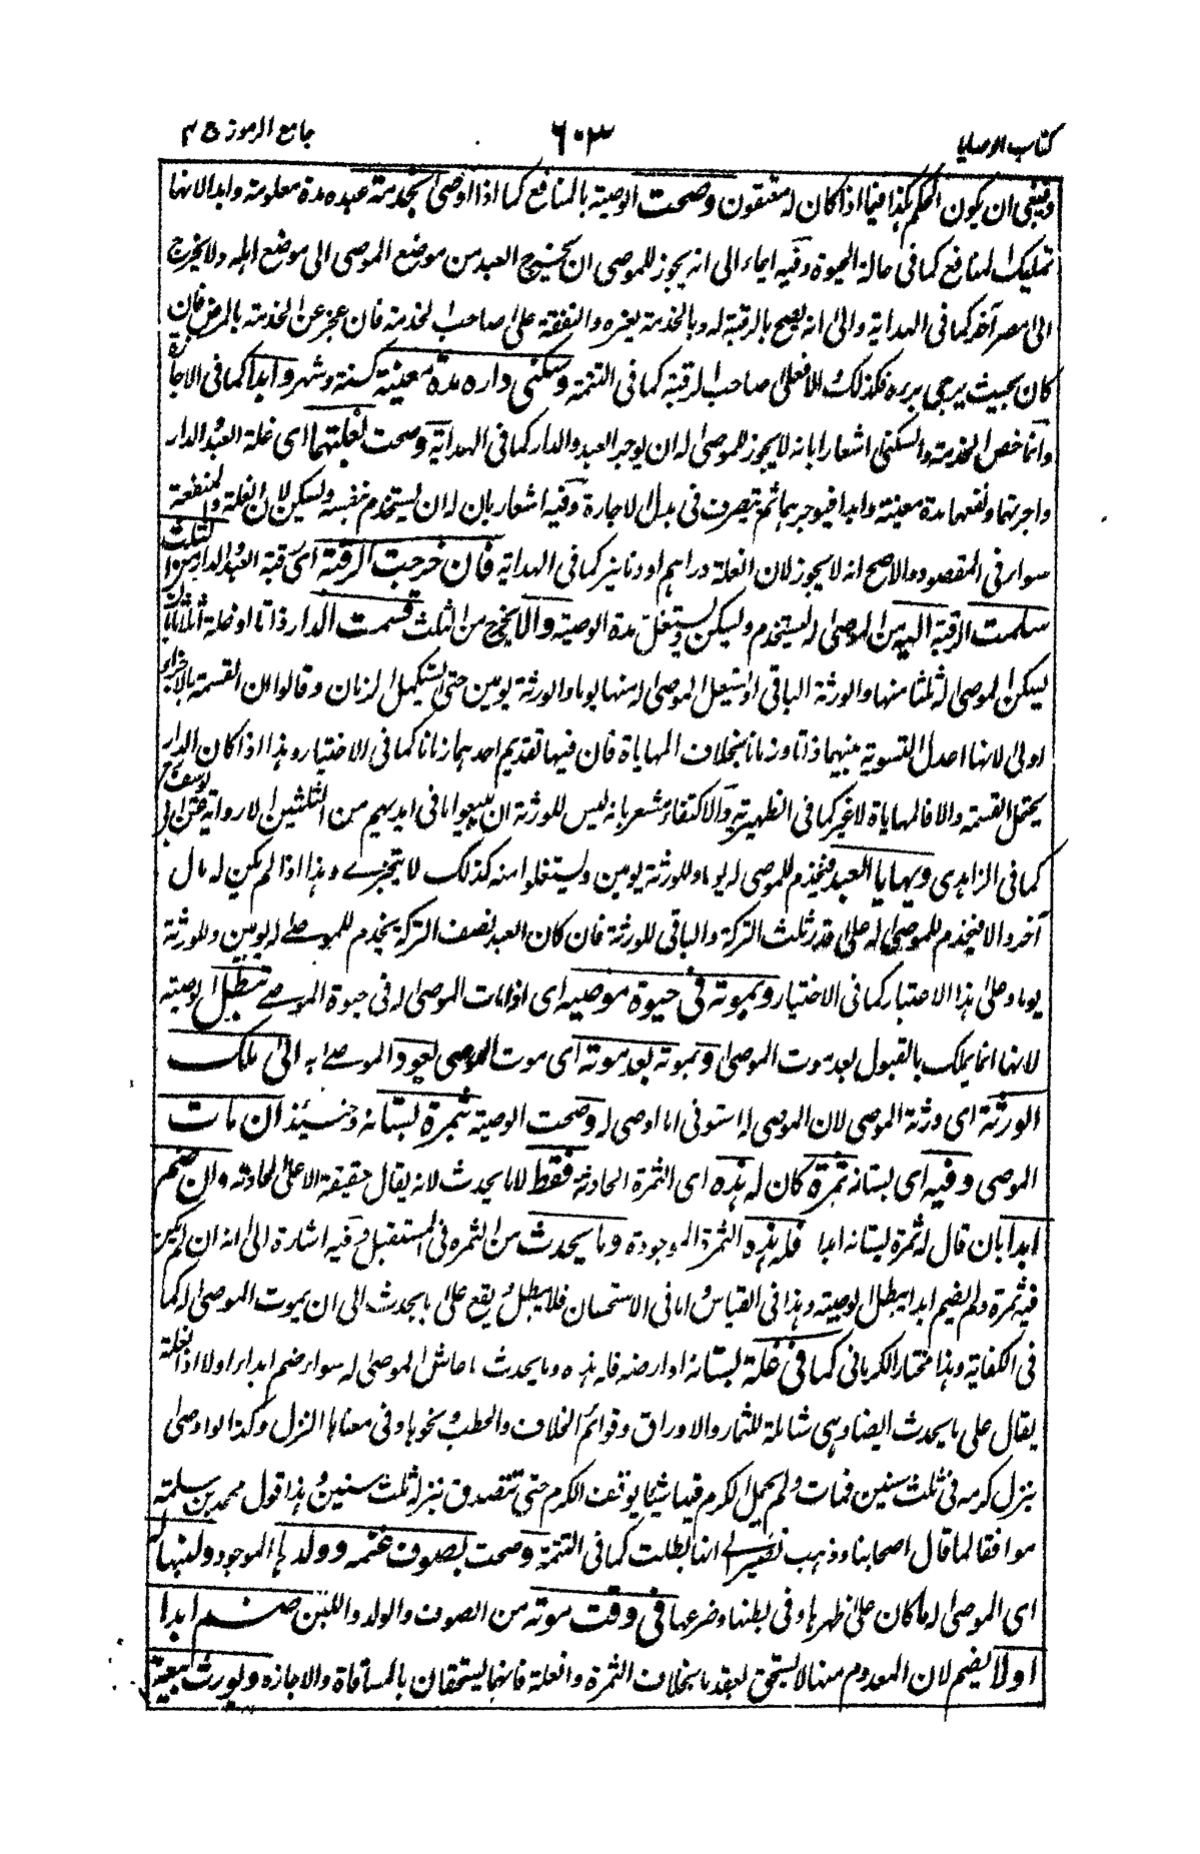 كتاب الوصايا ٦٠٣ جامع الرموز ج ٤
وينبغى ان يكون الحكم هكذا فيما اذا كان له معتقون وصحت الوصية بالمنافع كما اذا اوصى بخدمة عبده مدة معلومة وابدا لانها
تمليك المنافع كما فى حالة الحيوة وفيه ايماء الى انه يجوز للموصى ان يخرج العبد من موضع الموصى الى موضع اهله ولا يخرج
الى مصر آخر كما فى الهداية والى انه يصح بالرقبة له وبالخدمة لغيره والنفقة على صاحب الخدمة فان عجز عن الخدمة بالمرض فان
كان بحيث يرجى برءه فكذلك والا فعلى صاحب الرقبة كما فى التتمة وسكنى داره مدة معينة كسنة وشهر وابدا كما فى الاجارة
وانما خص الخدمة والسكنى اشعارا بانه لا يجوز للموصى له ان يوجر العبد والدار كما فى الهداية وصحت لغلتهما اى غلة العبد والدار
واجرتهما ونفعهما مدة معينة وابدا فيوجرهما ثم يتصرف فى بدل الاجارة وفيه اشعار بان له ان يستخدم بنفسه ويسكن لان الغلة والمنفعة
سواء فى المقصود والاصح انه لا يجوز لان الغلة دراهم او دنانير كما فى الهداية فان خرجت الرقبة اى رقبة العبد والدار من الثلث
سلمت الرقبة اليه من الموصى له ليستخدم ويسكن ويستغل مدة الوصية والا يخرج من الثلث قسمت الدار ذاتا او غلة اثلاثا فان
يسكن الموصى له ثلثا منها والورثة الباقى او يستغل الموصى له منها يوما والورثة يومين حتى يستكمل الزمان وقالوا ان القسمة بالاجزاء
اولى لانها اعدل للتسوية بينهما ذاتا وزمانا بخلاف المهاياة فان فيها تقديم احدهما زمانا كما فى الاختيار وهذا اذا كان الدار
يحتمل القسمة والا فالمهاياة لا غير كما فى الظهيرية والاكتفاء مشعر بانه ليس للورثة ان يبيعوا ما فى ايديهم من الثلثين الا رواية عن ابى يوسف رح
كما فى الزاهدى ويهايا العبد فيخدم للموصى له يوما وللورثة يومين ويستغلوا منه كذلك لا يتجزى وهذا اذا لم يكن له مال
آخر والا فيخدم للموصى له على قدر ثلث التركة والباقى للورثة فان كان العبد نصف التركة يخدم للموصى له يومين وللورثة
يوما وعلى هذا الاعتبار كما فى الاختيار وبموته فى حيوة موصيه اى اذا مات الموصى له فى حيوة الموصى تبطل الوصية
لانها انما يملك بالقبول بعد موت الموصى وبموته بعد موته اى موت الموصى يعود الموصى به الى ملك
الورثة اى ورثة الموصى لان الموصى له استوفى ما اوصى له وصحت الوصية بثمرة بستانه وحينئذ ان مات
الموصى وفيه اى بستانه ثمرة كان له هذه اى الثمرة الحادثة فقط لا ما يحدث لانه يقال حقيقة الا على الحادثة وان ضم
ابدا بان قال له ثمرة بستانه ابدا فله هذه الثمرة الموجودة وما يحدث من الثمرة فى المستقبل وفيه اشارة الى انه ان لم يكن
فيه ثمرة ولم يضم ابدا يبطل الوصية وهذا فى القياس واما فى الاستحسان فلا يبطل ويقع على ما يحدث الى ان يموت الموصى له كما
فى الكفاية وهذا مختار الكرمانى كما فى غلة بستانه او ارضه فله هذه وما يحدث ما عاش الموصى له سواء ضم ابدا او لا اذ الغلة
يقال على ما يحدث ايضا وهى شاملة للثمار والاوراق وقوائم الخلاف والحطب ونحوها وفى معناها النزل وكذا لو اوصى
بنزل كرمه فى ثلث سنين فمات ولم يحمل الكرم فيها شيئا يوقف الكرم حتى تتصدق بنزله ثلث سنين وهذا قول محمد بن سلمة
موافقا لما قال اصحابنا وذهب نصير الى انها بطلت كما فى التتمة وصحت بصوف غنمه وولدها الموجود ولبنها له
اى الموصى له ما كان على ظهرها وفى بطنها وضرعها فى وقت موته من الصوف والولد واللبن ضم ابدا
اولا يضم لان المعدوم منها لا يستحق بعقد ما بخلاف الثمرة والغلة فانهما يستحقان بالمساقاة والاجازه ويورث بيعة